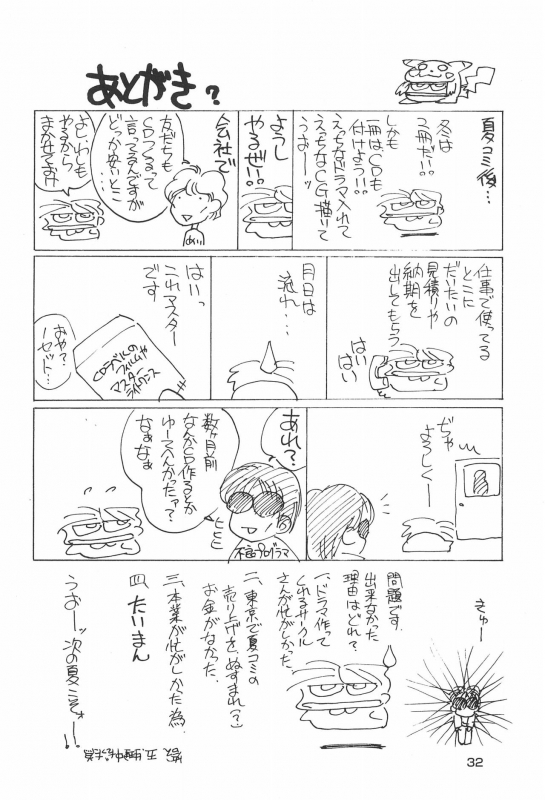 あとがき?
夏コミ後…
冬は
2冊だ!!
しかも
一冊はCDも
付けよう!!
えっちなドラマ入れて
えっちなCG描いて
うおーッ
ようし
やるぜい!!
会社で
友だちも
CDつくるって
言ってるんですが
どっか安いとこ
あい
よしわしも
やるから
まかせてみ!!
仕事で使ってる
とこに
だいたいの
見積りや
納期を
出してもらう
はい
はい
月日は
流れ…
はいっ
これマスター
です
CDラベルの
フィルムや
マスタ
おや?
1セット…
ぢゃ
よろしくー
あれ?
数ヶ月前
なんかCD作るとか
ゆーてへんかったァ?
なぁなぁ
ヒヒヒ
プログラマ
問題です.
出来なかった
理由はどれ?
一、ドラマ作って
くれるサークル
さんが忙がしかった.
二、東京で夏コミの
売り上げをぬすまれ(?)
お金がなかった.
三、本業が忙がしかた為.
四、たいまん
うおーッ次の夏こそォー!!
さゅー
32